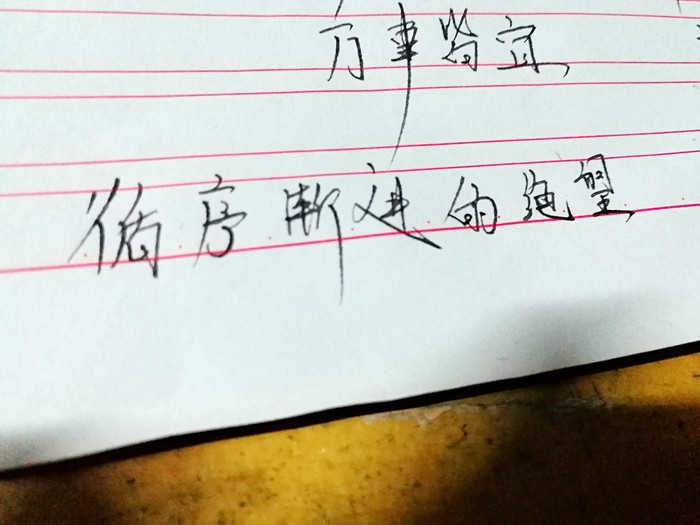 万事皆宜
循序渐进的绝望